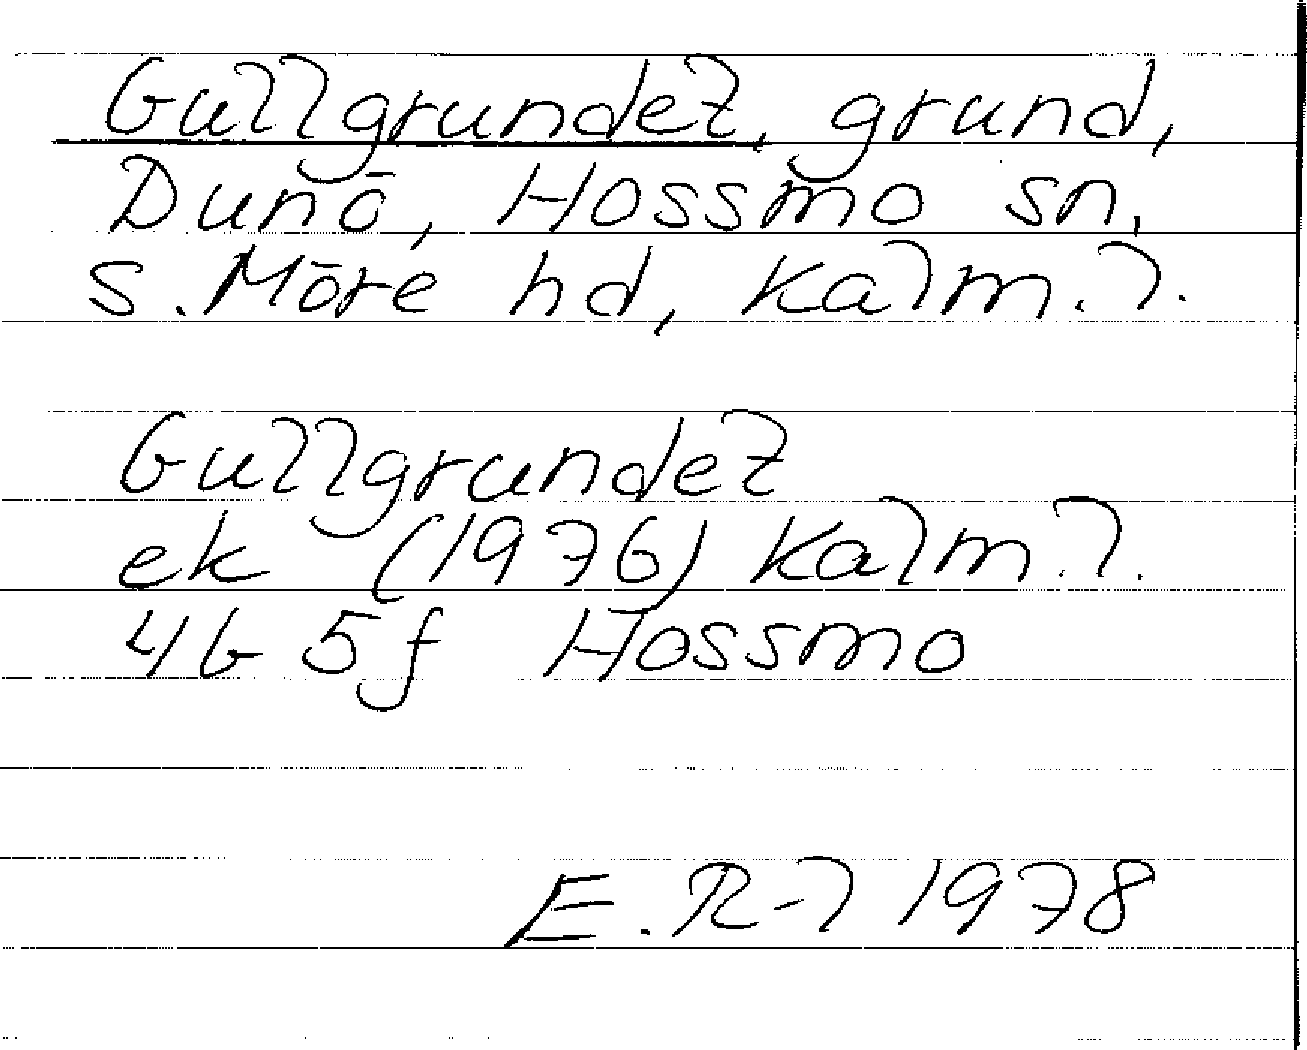 Gullgrundet, grund,
Dunö, Hossmo sn,
S. Möre hd, Kalm. l.
Gullgrundet
ek (1976) Kalm. l.
4G 5f Hossmo
E. R-l 1978